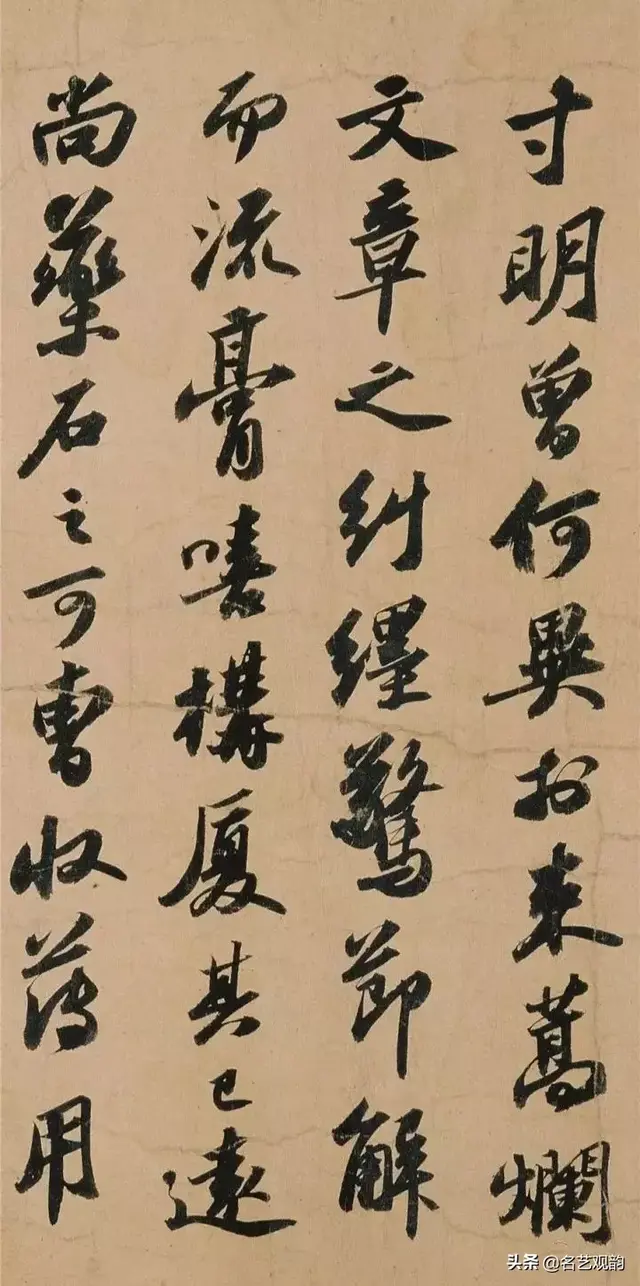 寸明曾何異於束蒿爛
文章之糾纆驚節解
而流膏嘻構厦其已遠
尚藥石之可曹收薄用
头条 @名艺观韵